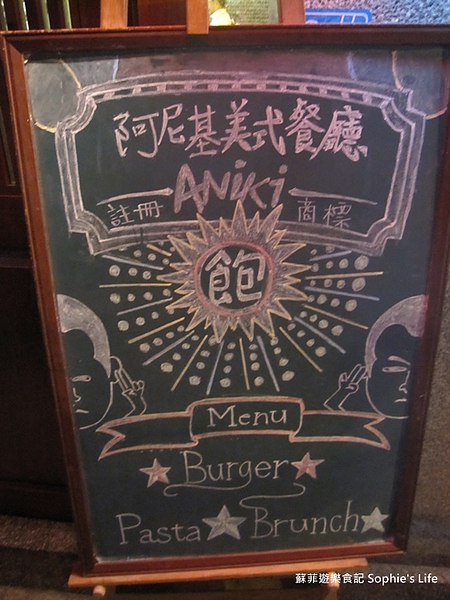 阿尼基美式餐廳
ANiKi
註冊 商標
飽
Menu
Burger
Pasta Brunch
蘇菲遊樂食記 Sophie's Life